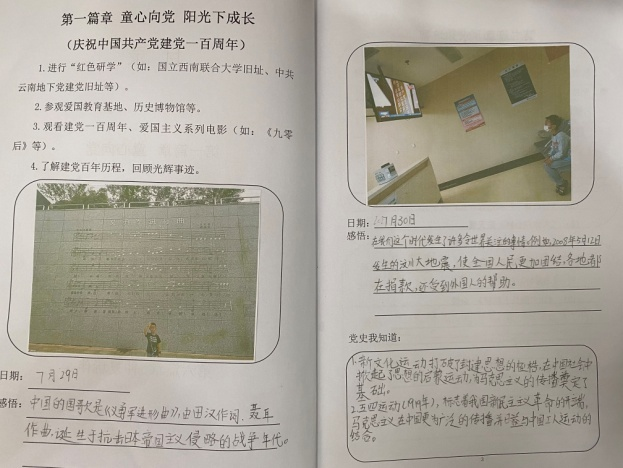 第一篇章 童心向党 阳光下成长
（庆祝中国共产党建党一百周年）
1.进行“红色研学”（如：国立西南联合大学旧址、中共
云南地下党建党旧址等）。
2.参观爱国教育基地、历史博物馆等。
3.观看建党一百周年、爱国主义系列电影（如：《九零
后》等）。
4.了解建党百年历程，回顾光辉事迹。
日期： 7月29日
感悟： 中国的国歌是《义勇军进行曲》，由田汉作词、聂耳
作曲，诞生于抗击日本帝国主义侵略的战争年代。
日期： 7月30日
感悟： 在我们这个时代发生了许多令世界关注的事情，例如，2008年5月12日
发生的汶川大地震，使全国人民更加团结，各地都
在捐款，还受到外国人的帮助。
党史我知道：
1.新文化运动打破了封建思想的桎梏，在中国社会中
掀起了思想的启蒙运动，为马克思主义的传播奠定了
基础。
2.五四运动（1919年），标志着我国新民主主义革命的开端，
马克思主义在中国更为广泛的传播并日益与中国工人运动的
结合。
2